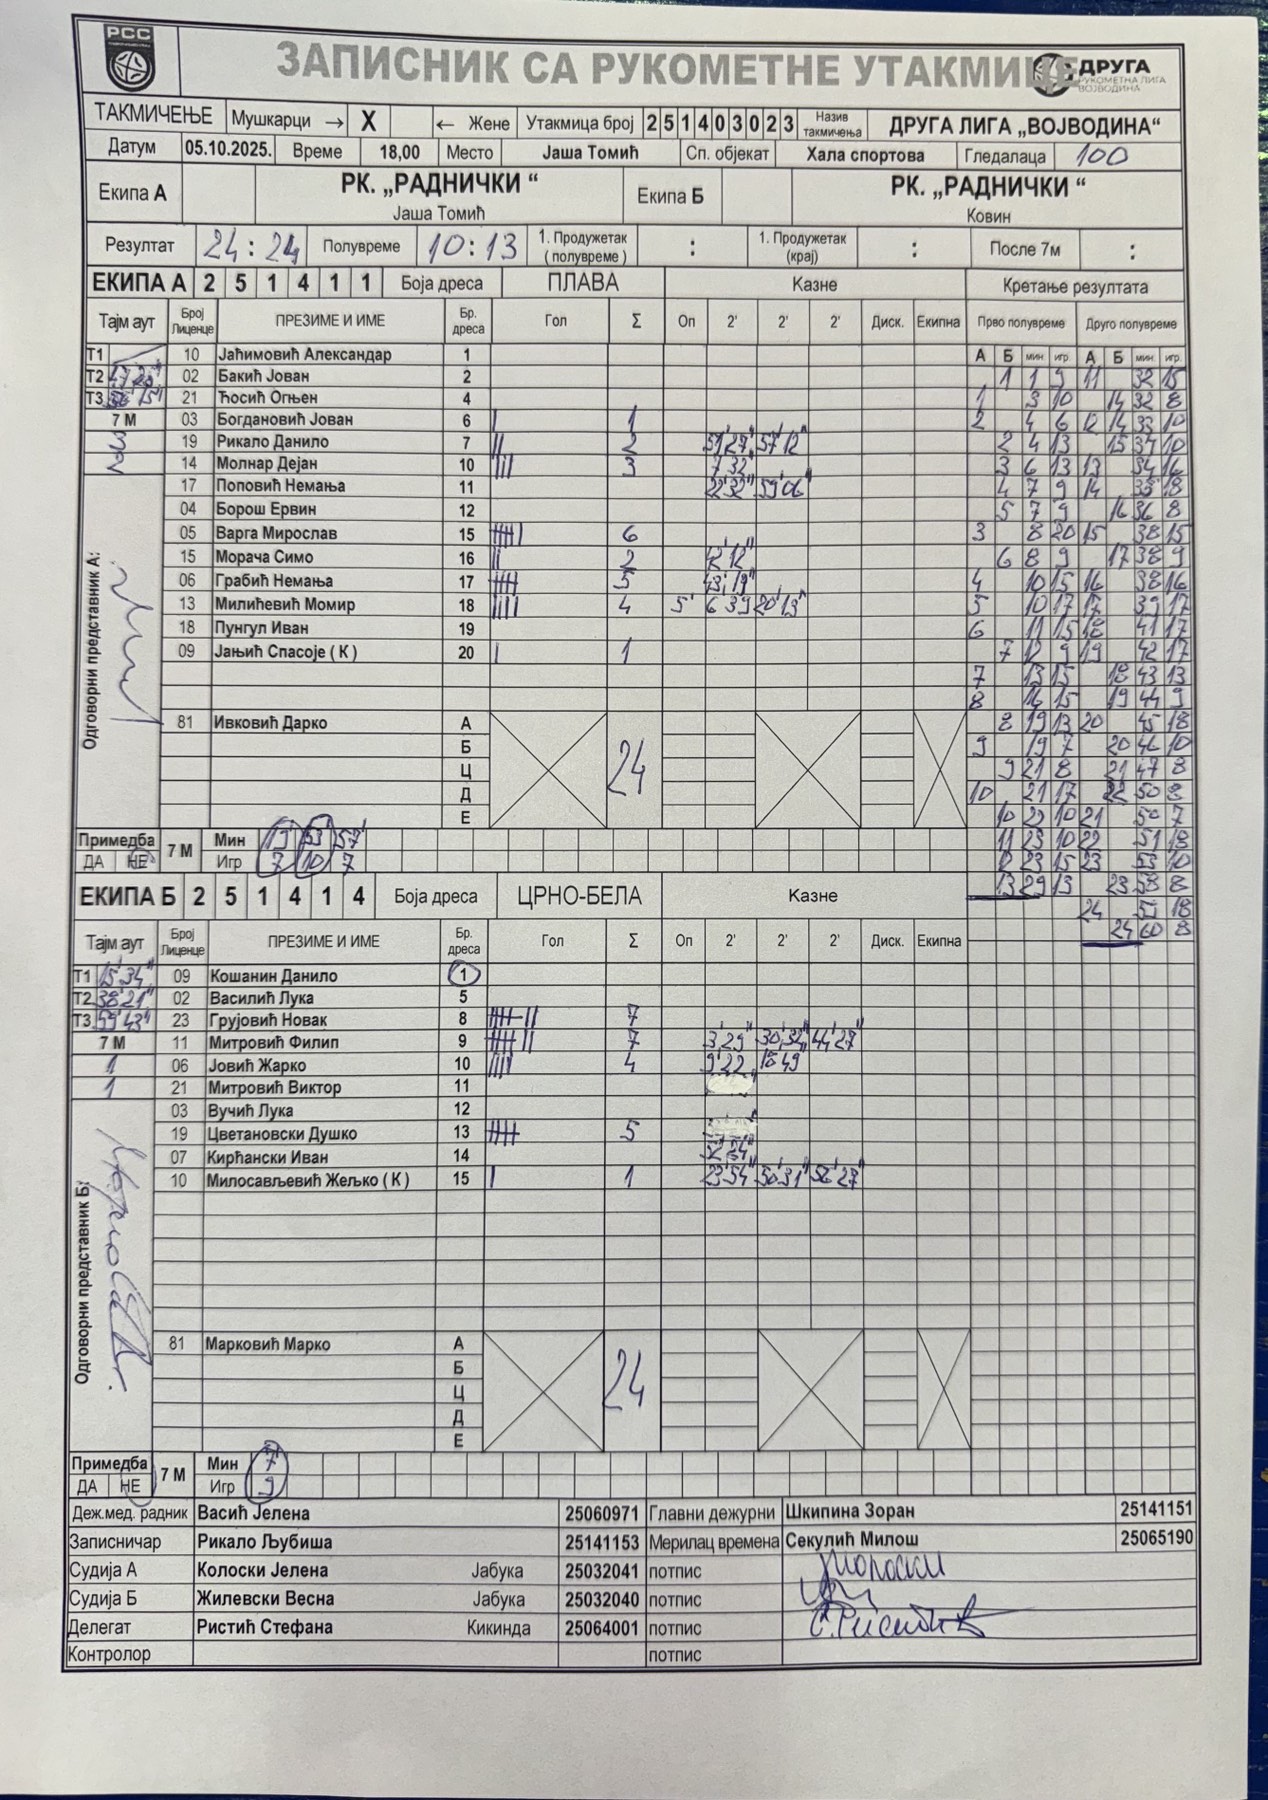 РСС
ЗАПИСНИК СА РУКОМЕТНЕ УТАКМИЦЕ
ДРУГА
РУКОМЕТНА ЛИГА
ВОЈВОДИНА
ТАКМИЧЕЊЕ Мушкарци → X ← Жене Утакмица број 2 5 1 4 0 3 0 2 3 Назив такмичења ДРУГА ЛИГА „ВОЈВОДИНА“
Датум 05.10.2025. Време 18,00 Место Јаша Томић Сп. објекат Хала спортова Гледалаца 100
Екипа А РК. „РАДНИЧКИ “ Јаша Томић Екипа Б РК. „РАДНИЧКИ “ Ковин
Резултат 24 : 24 Полувреме 10 : 13 1. Продужетак (полувреме ) : 1. Продужетак (крај) : После 7м :
ЕКИПА А 2 5 1 4 1 1 Боја дреса ПЛАВА Казне Кретање резултата
Тајм аут Број Лиценце ПРЕЗИМЕ И ИМЕ Бр. дреса Гол Σ Оп 2' 2' 2' Диск. Екипна Прво полувреме Друго полувреме
А Б мин. игр. А Б мин. игр.
Т1 10 Јаћимовић Александар 1
Т2 02 Бакић Јован 2 1 1 9 11 32 15
Т3 21 Ћосић Огњен 4 1 3 10 14 32 8
7 М 03 Богдановић Јован 6 I 1 2 4 6 12 14 33 10
3 19 Рикало Данило 7 II 2 51'27" 57'12" 2 4 13 15 34 10
2 14 Молнар Дејан 10 III 3 7'32" 3 6 13 13 34 16
17 Поповић Немања 11 22'32" 59'06" 4 7 9 14 35 18
04 Борош Ервин 12 5 7 9 16 36 8
05 Варга Мирослав 15 6 3 8 20 15 38 15
15 Морача Симо 16 II 2 12'12" 6 8 9 17 38 9
06 Грабић Немања 17 5 43'19" 4 10 15 16 38 16
13 Милићевић Момир 18 IIII 4 5' 6'39 20'13" 5 10 17 17 39 17
18 Пунгул Иван 19 6 11 15 18 41 17
09 Јањић Спасоје ( К ) 20 I 1 7 12 9 19 42 17
7 13 15 18 43 13
8 16 15 19 44 9
81 Ивковић Дарко А 24 8 19 13 20 45 18
Б 9 19 7 20 46 10
Ц 9 21 8 21 47 8
Д 10 21 17 22 50 8
Е 10 22 10 21 50 7
Примедба 7 М Мин 19' 53' 57' 11 23 10 22 51 18
ДА НЕ Игр 7 10 7 12 23 15 23 53 10
ЕКИПА Б 2 5 1 4 1 4 Боја дреса ЦРНО-БЕЛА Казне 13 29 13 23 58 8
24 59 18
24 60 8
Тајм аут Број Лиценце ПРЕЗИМЕ И ИМЕ Бр. дреса Гол Σ Оп 2' 2' 2' Диск. Екипна
Т1 15'34" 09 Кошанин Данило 1
Т2 38'21" 02 Василић Лука 5
Т3 59'43" 23 Грујовић Новак 8 7
7 М 11 Митровић Филип 9 7 3'29" 30'34" 44'27"
1 06 Јовић Жарко 10 IIII 4 9'22 18'49
1 21 Митровић Виктор 11
03 Вучић Лука 12
19 Цветановски Душко 13 5
07 Кирћански Иван 14 52'54"
10 Милосављевић Жељко ( К ) 15 I 1 23'54" 50'31" 56'27"
Одговорни представник А:
Одговорни представник Б:
81 Марковић Марко А 24
Б
Ц
Д
Е
Примедба 7 М Мин 7'
ДА НЕ Игр 9
Деж.мед. радник Васић Јелена 25060971 Главни дежурни Шкипина Зоран 25141151
Записничар Рикало Љубиша 25141153 Мерилац времена Секулић Милош 25065190
Судија А Колоски Јелена Јабука 25032041 потпис
Судија Б Жилевски Весна Јабука 25032040 потпис
Делегат Ристић Стефана Кикинда 25064001 потпис
Контролор потпис